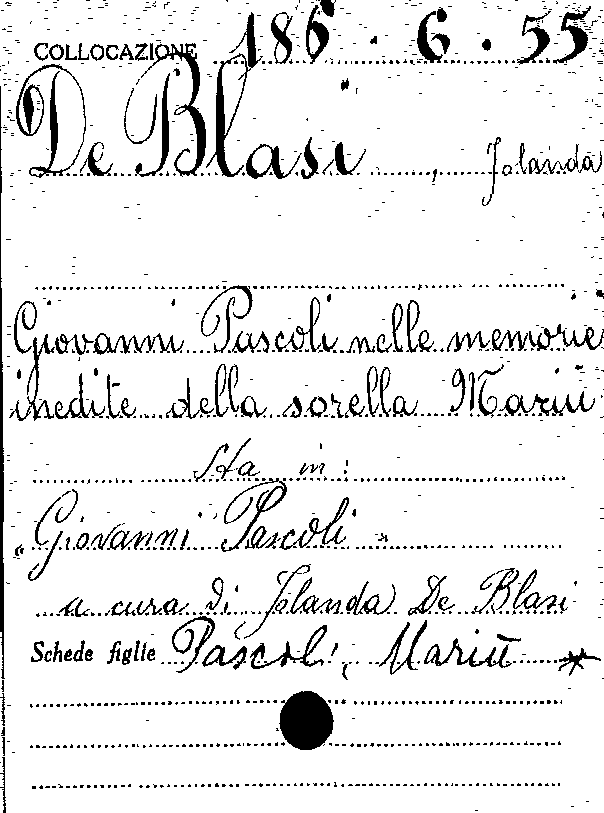 COLLOCAZIONE 186 . 6 . 55
De Blasi , Jolanda
Giovanni Pascoli nelle memorie
inedite della sorella Mariù
Sta in :
"Giovanni Pascoli"
a cura di Jolanda De Blasi
Schede figlie Pascoli, Mariù *